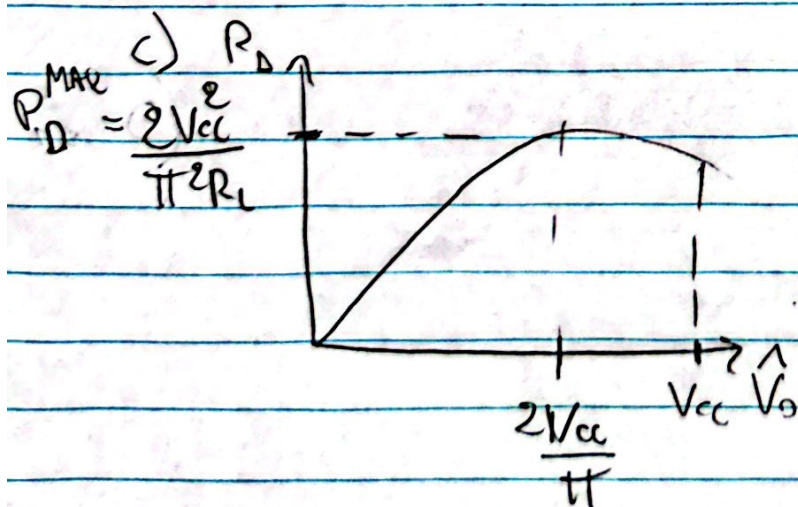 c) P_D
P_D^MAX = 2Vcc² / π²R_L
2Vcc / π
Vcc V̂o